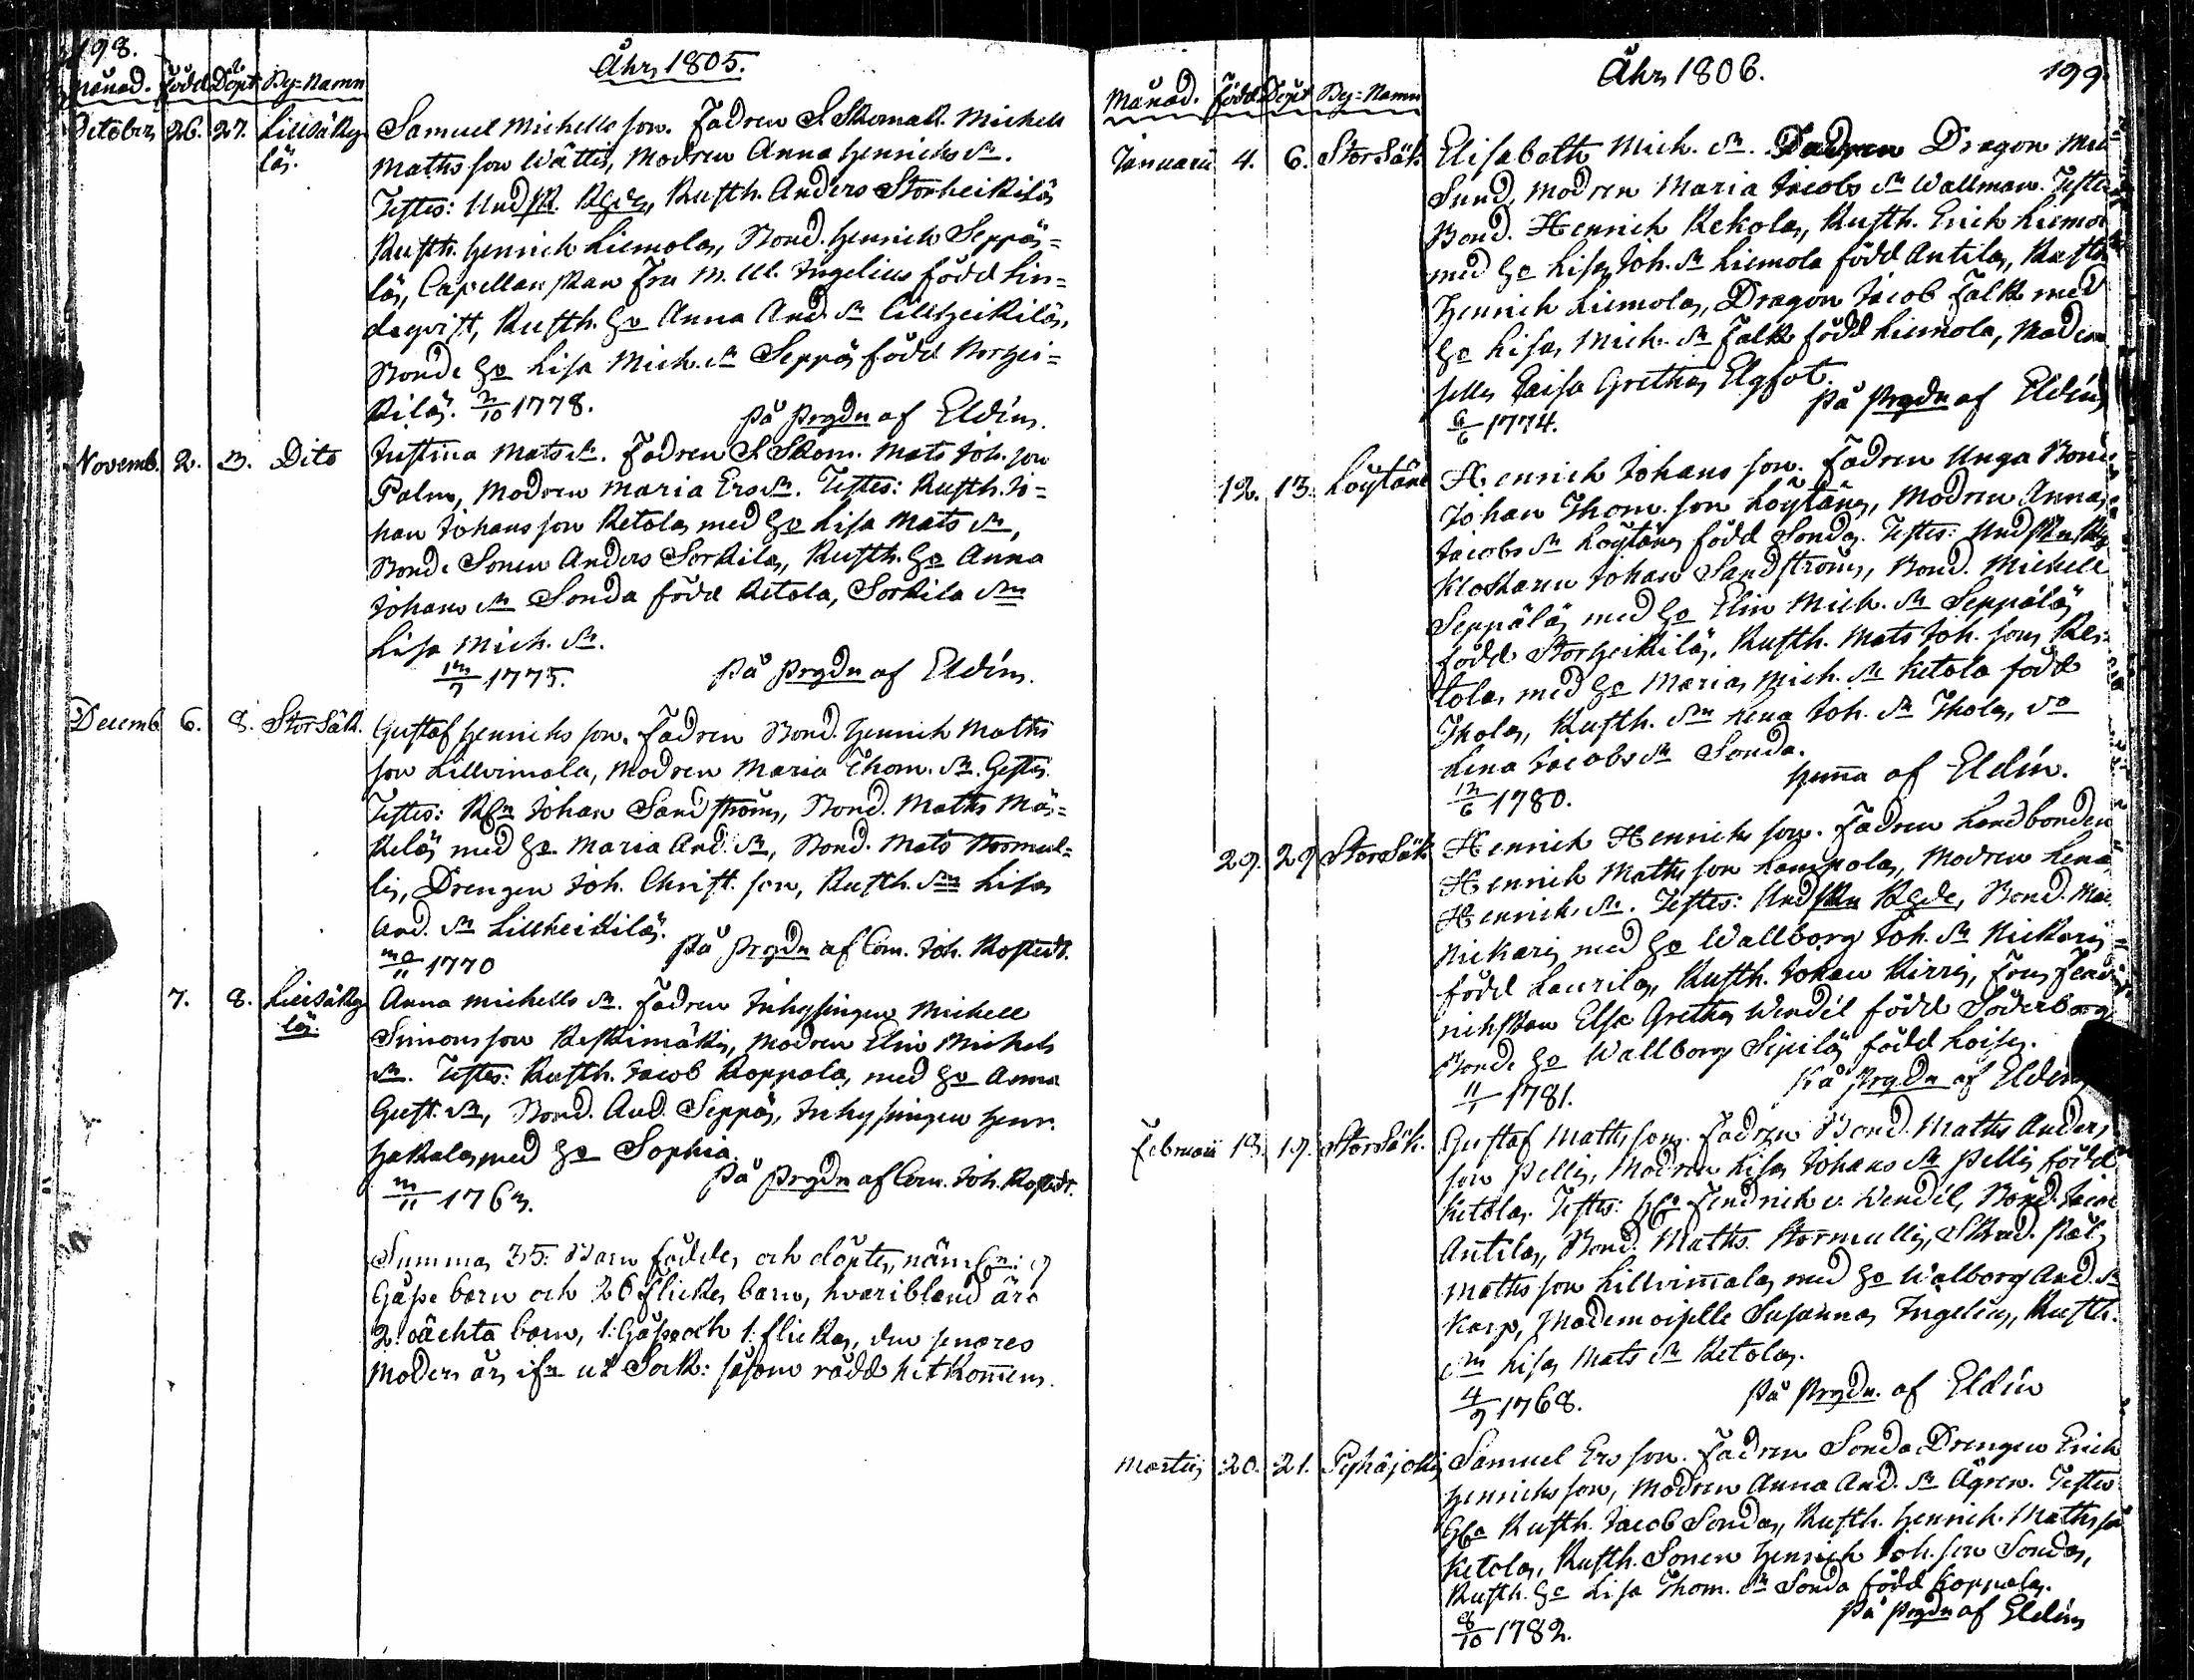 198.
Åhr 1805.
Månad. Född Döpt By=Namn
October 26. 27. Lillsäky
lä.
Samuel Michells son. Fadren S. Skomak. Michell
Maths son Wättis, Modren Anna Henrichs dr.
Testes: Rusth. Anders Storheikilä
Rusth. Henrich Liemola, Bond. Henrich Seppä=
lä, Capellanskan Fru M. Ul. Ingelius född Lin=
deqvist, Rusth. Ho Anna And. dr Lillheikilä,
Bonde Ho Lisa Mich. dr Seppä född Norhei=
kilä. 2/10 1778.
på prgdn af Eldin.
Novemb. 2. 3. Dito
Justina Mats dr. Fadren S. Skom. Mats Joh. son
Palm, Modren Maria Ers dr. Testes: Rusth. Jo=
han Johans son Ketola med Ho Lisa Mats dr,
Bonde Sonen Anders Sorkila, Rusth. Ho Anna
Johans dr Sonda född Ketola, Sorkila
Lisa Mich. dr.
1775.
på prgdn af Eldin.
Decemb. 6. 8. Storsäk.
Gustaf Henrichs son. Fadren Bond. Henrich Maths
son Lillvimala, Modren Maria Thom. dr.
Testes: Johan Sandström, Bond. Maths Mä=
kelä med Ho Maria And. dr, Bond. Mats Stormul=
li, Drengen Joh. Christ. son, Rusth. Lisa
And. dr Lillheikilä.
1770
på prgdn af Com. Joh. Rostedt.
7. 8. Lillsäky
lä.
Anna Michells dr. Fadren Inhysingen Michell
Simons son Keskimäki, Modren Elin Michels
dr. Testes: Rusth. Jacob Koppala, med Ho Anna
Gust. dr, Bond. And. Seppä, Inhysingen Henr.
Hakala med Ho Sophia.
på prgdn af Com. Joh. Rostedt.
Summa 35: Barn födde och döpte, näml:n: 9
Gåsse barn och 26 flicke barn, hvaribland äro
2: oächta barn, 1: Gåsse och 1: flicka, den senares
Moder är ifrn ut Sock: såsom rådd hitkommen.
Åhr 1806.
199.
Månad. Född Döpt By=Namn
Januarii 4. 6. Storsäk.
Elisabeth Mich. dr. Fadren Dragon
Sund, Modren Maria Jacobs dr Wallman. Testes
Bond. Henrich Rekola, Rusth. Erich Liemola
med Ho Lisa Joh. dr Liemola född Antila, Rusth.
Henrich Liemola, Dragon Jacob Falk med
Ho Lisa Mich. dr Falk född Liemola, Madem
selle Caisa Gretha Elgfot.
på prgdn af Eldin
6/6 1774.
12. 13. Löytäne
Henrich Johans son. Fadren Unga Bond
Johan Thom. son Löytäne, Modren Anna
Jacobs dr Löytäne född Sonda. Testes:
Klockaren Johan Sandström, Bond. Michell
Seppälä med Ho Elin Mich. dr Seppälä
född Storheikilä, Rusth. Mats Joh. son Ke=
tola med Ho Maria Mich. dr Ketola född
Thola, Rusth. Lena Joh. dr Thola, do
Lena Jacobs dr Sonda.
hemma af Eldin.
1780.
29. 29 Storsäk
Henrich Henrichs son. Fadren Landbonden
Henrich Maths son Lampola, Modren Lena
Henrichs dr. Testes: Bond. Mat
Nickari med Ho Wallborg Joh. dr Nickari
född Laurila, Rusth. Johan Kirri, Fru Fend
richskan Elsa Gretha Wendel född Söderborg
Bonde Ho Wallborg Sipilä född Loisa.
på prgdn af Eldin
11/1 1781.
Februarii 18. 19. Storsäk.
Gustaf Maths son. Fadren Bond. Maths Anders
son Pelli, Modren Lisa Johans dr Pelli född
Ketola. Testes: Fendrich v. Wendel, Bond. Jacob
Antila, Bond. Maths Stormulli, Skrad.
Maths son Lillvimala med Ho Walborg And. dr
Karp, Mademoiselle Susanna Ingelius, Rusth.
Lisa Mats dr Ketola.
på prgdn. af Eldin
4/9 1768.
Martii 20. 21. Pyhäjoki
Samuel Ers son. Fadren Sonda Drengen Erich
Henrichs son, Modren Anna And. dr Ågren. Testes
Rusth. Jacob Sonda, Rusth. Henrich Maths son
Ketola, Rusth. Sonen Henrich Joh. son Sonda,
Rusth. Ho Lisa Thom. dr Sonda född Koppala.
på prgdn af Eldin
8/10 1782.